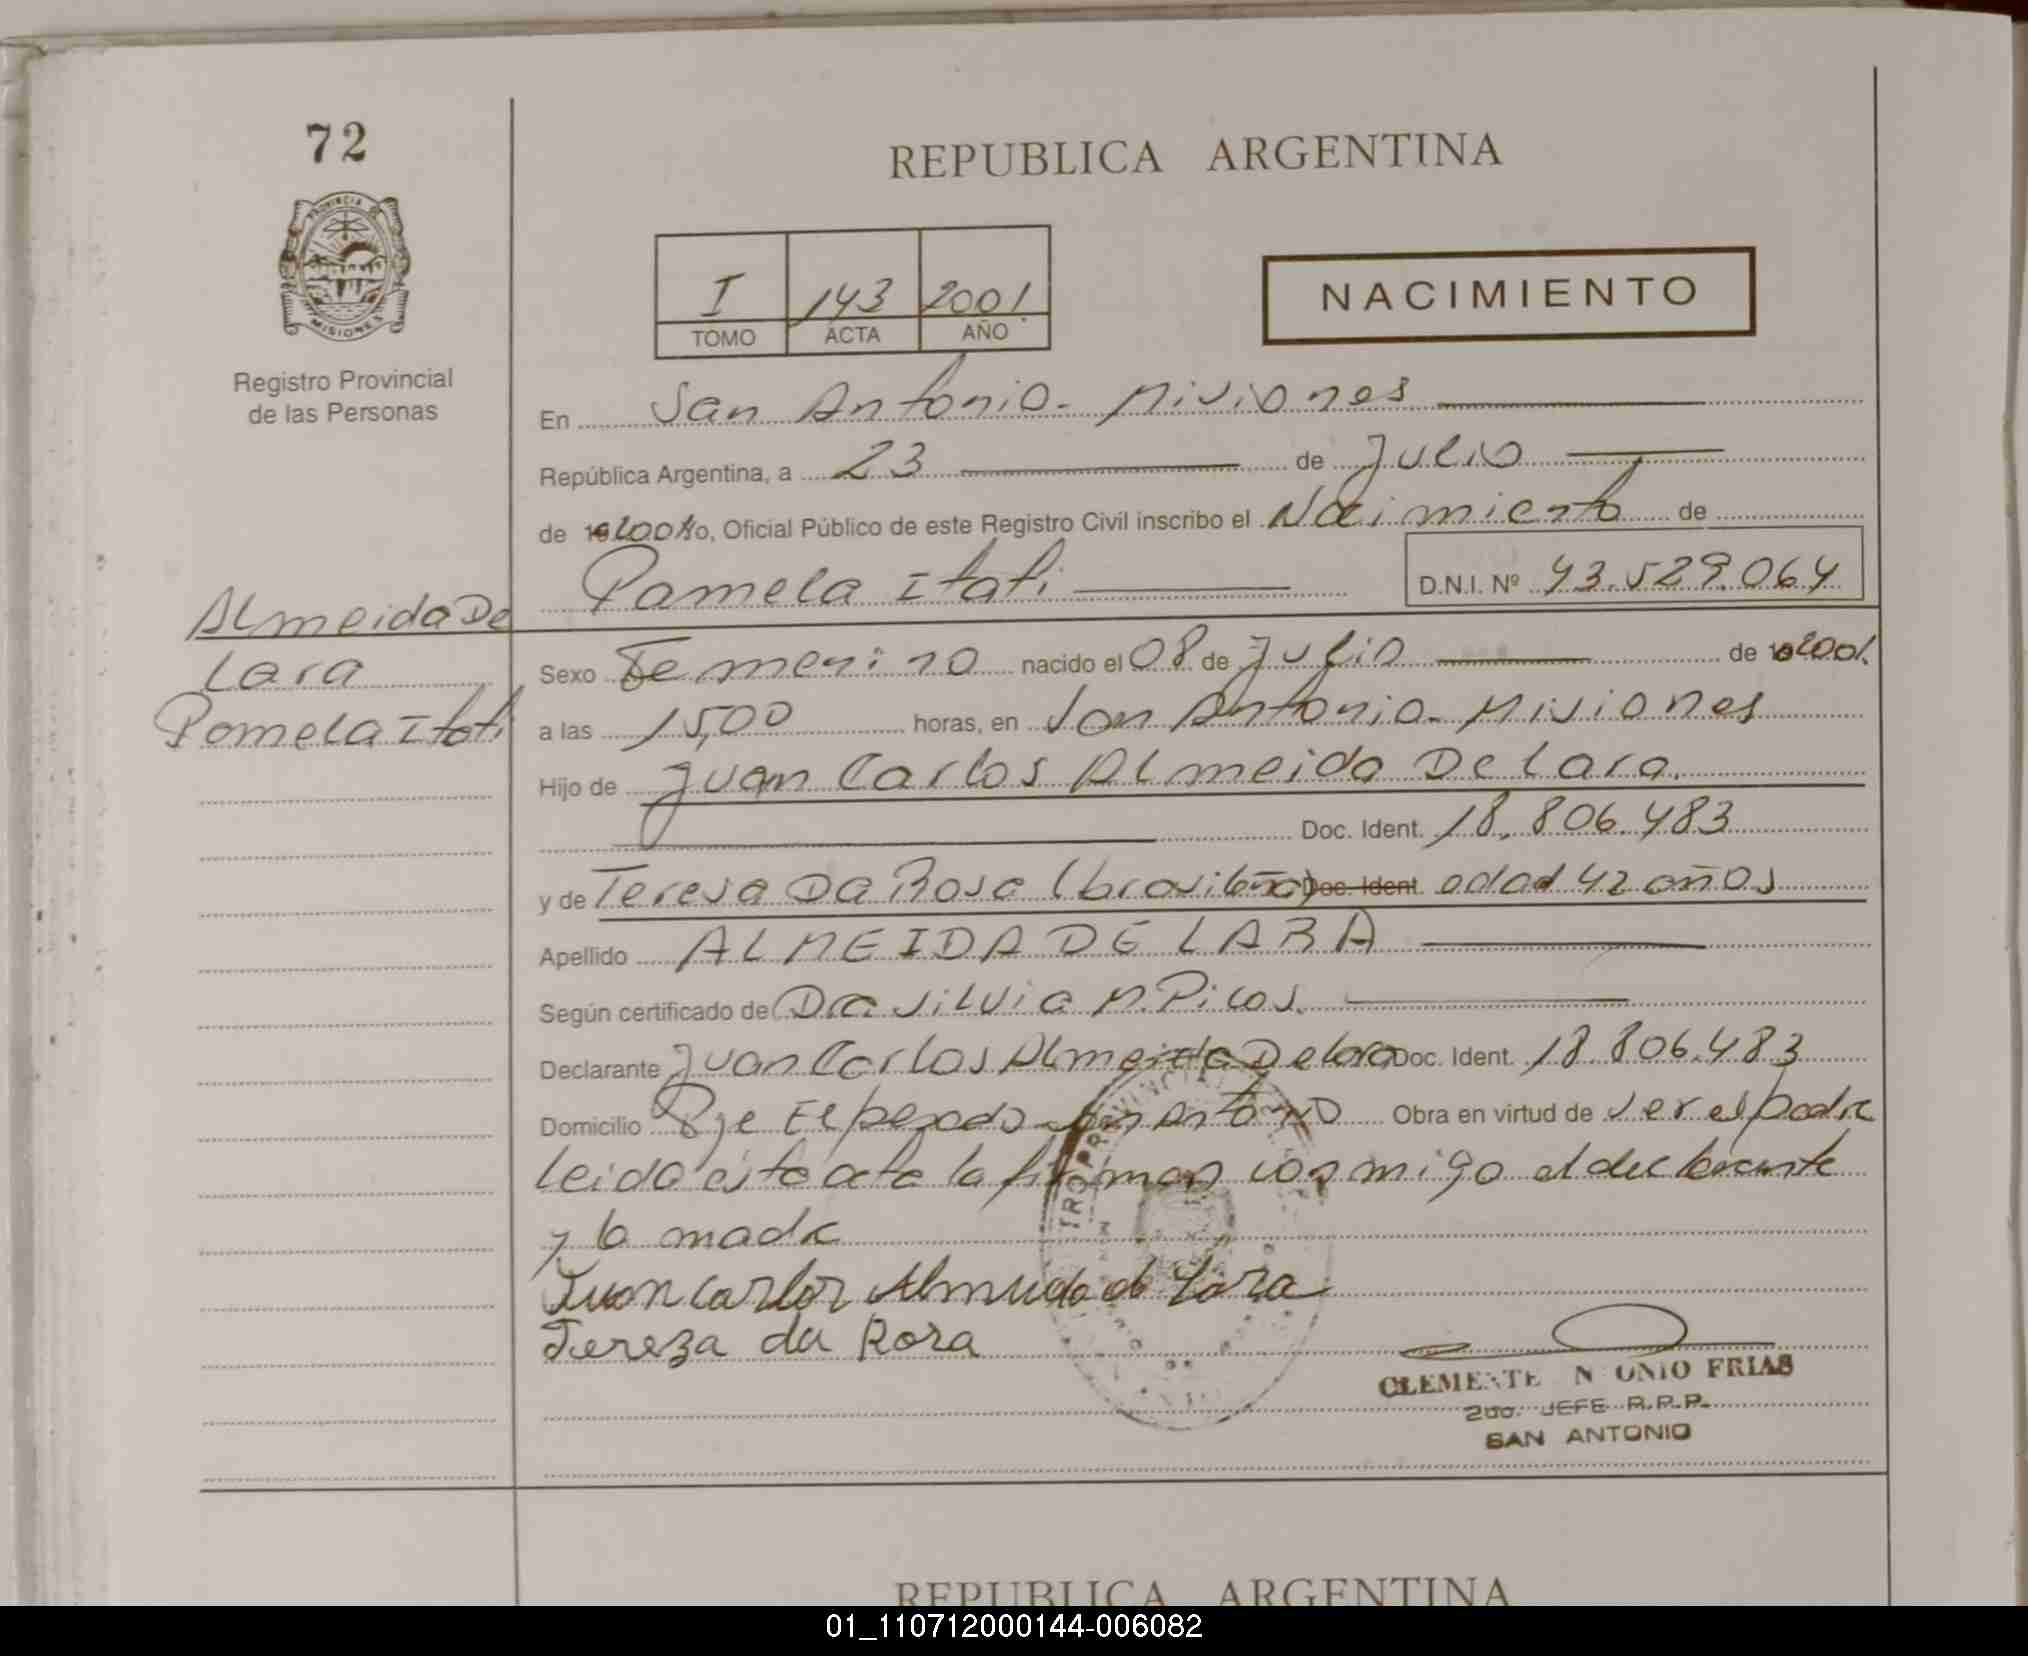 72
REPUBLICA ARGENTINA
PROVINCIA DE
MISIONES
Registro Provincial
de las Personas
I 143 2001.
TOMO ACTA AÑO
NACIMIENTO
En San Antonio - Misiones
República Argentina, a 23 de Julio
de 2001 Yo, Oficial Público de este Registro Civil inscribo el Nacimiento de
Pamela Itati D.N.I. Nº 43.529.064
Almeida De
Lara
Pamela Itati
Sexo Femenino nacido el 08 de Julio de 2001.
a las 15,00 horas, en San Antonio - Misiones
Hijo de Juan Carlos Almeida De Lara.
Doc. Ident. 18.806.483
y de Teresa Da Rosa (brasileña) Doc. Ident edad 42 años
Apellido ALMEIDA DE LARA
Según certificado de Dra Silvia M. Picos.
Declarante Juan Carlos Almeida De Lara Doc. Ident. 18.806.483
Domicilio San Antonio Obra en virtud de ser el padre
leida esta acta la firman conmigo el declarante
y la madre
Juan Carlos Almeida de Lara
Tereza da Rosa
CLEMENTE N ONIO FRIAS
2do. JEFE R.P.P.
SAN ANTONIO
REPUBLICA ARGENTINA
01_110712000144-006082